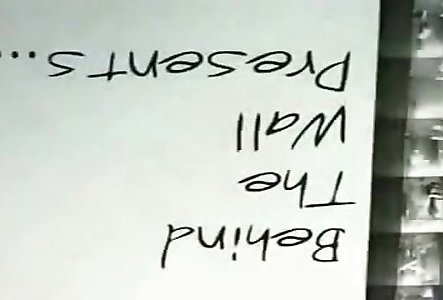 Behind
The
Wall
Presents...